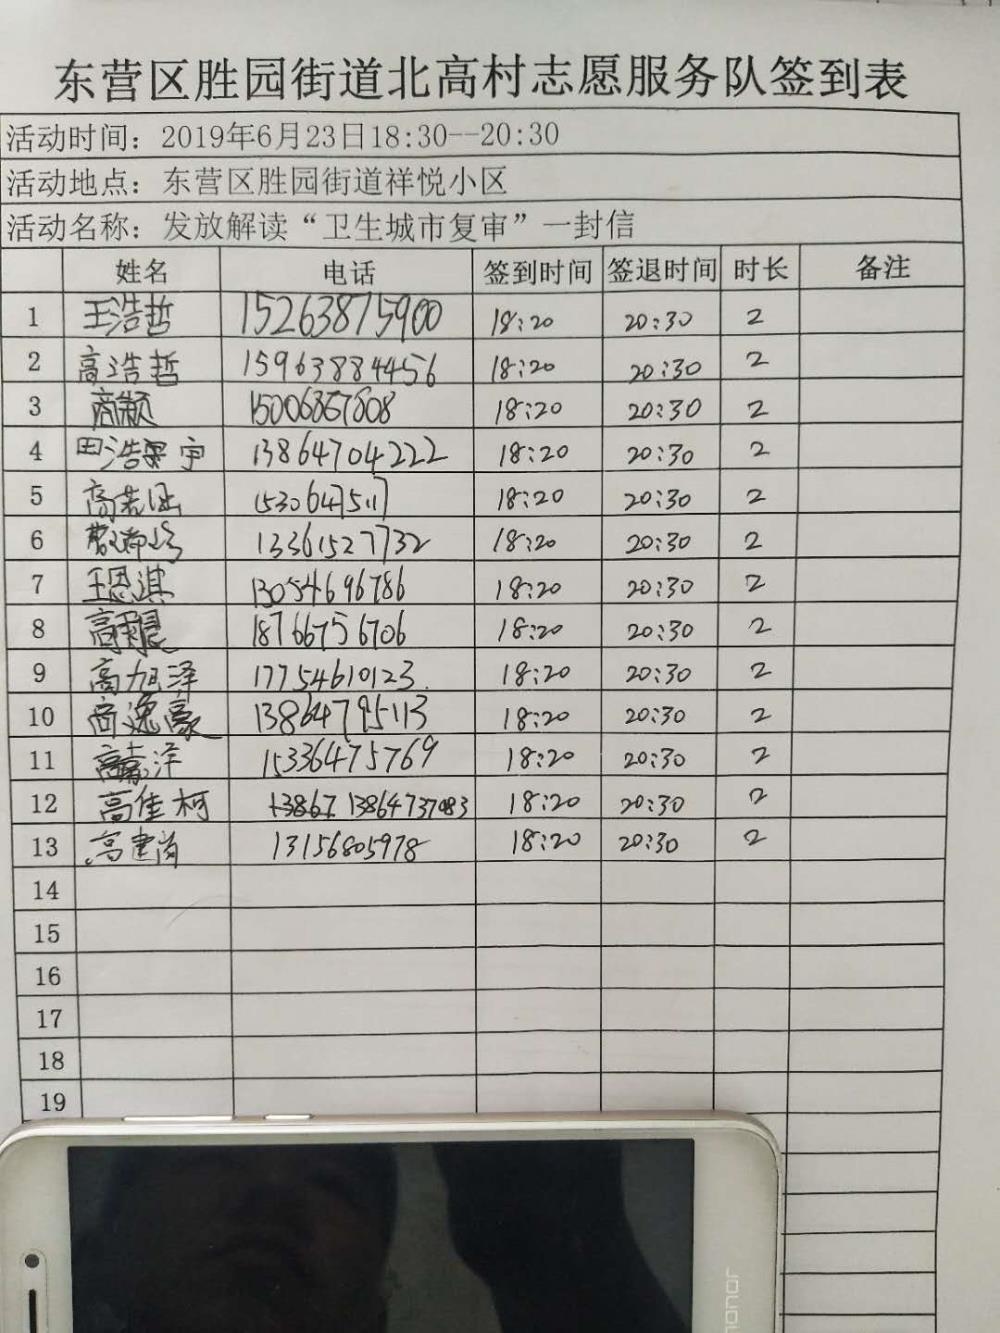 东营区胜园街道北高村志愿服务队签到表
活动时间：2019年6月23日18:30--20:30
活动地点：东营区胜园街道祥悦小区
活动名称：发放解读“卫生城市复审”一封信
姓名 电话 签到时间 签退时间 时长 备注
1 王浩哲 15263875900 18:20 20:30 2
2 高浩哲 15963884456 18:20 20:30 2
3 18:20 20:30 2
4 田浩 宇 13864704222 18:20 20:30 2
5 高若 15306475117 18:20 20:30 2
6 13361527732 18:20 20:30 2
7 王恩淇 13054696786 18:20 20:30 2
8 高 晨 18766756706 18:20 20:30 2
9 高旭泽 17754610123 18:20 20:30 2
10 高逸豪 13864795113 18:20 20:30 2
11 高嘉洋 15336475769 18:20 20:30 2
12 高佳柯 13864737083 18:20 20:30 2
13 高建 13156805978 18:20 20:30 2
14
15
16
17
18
19
honor